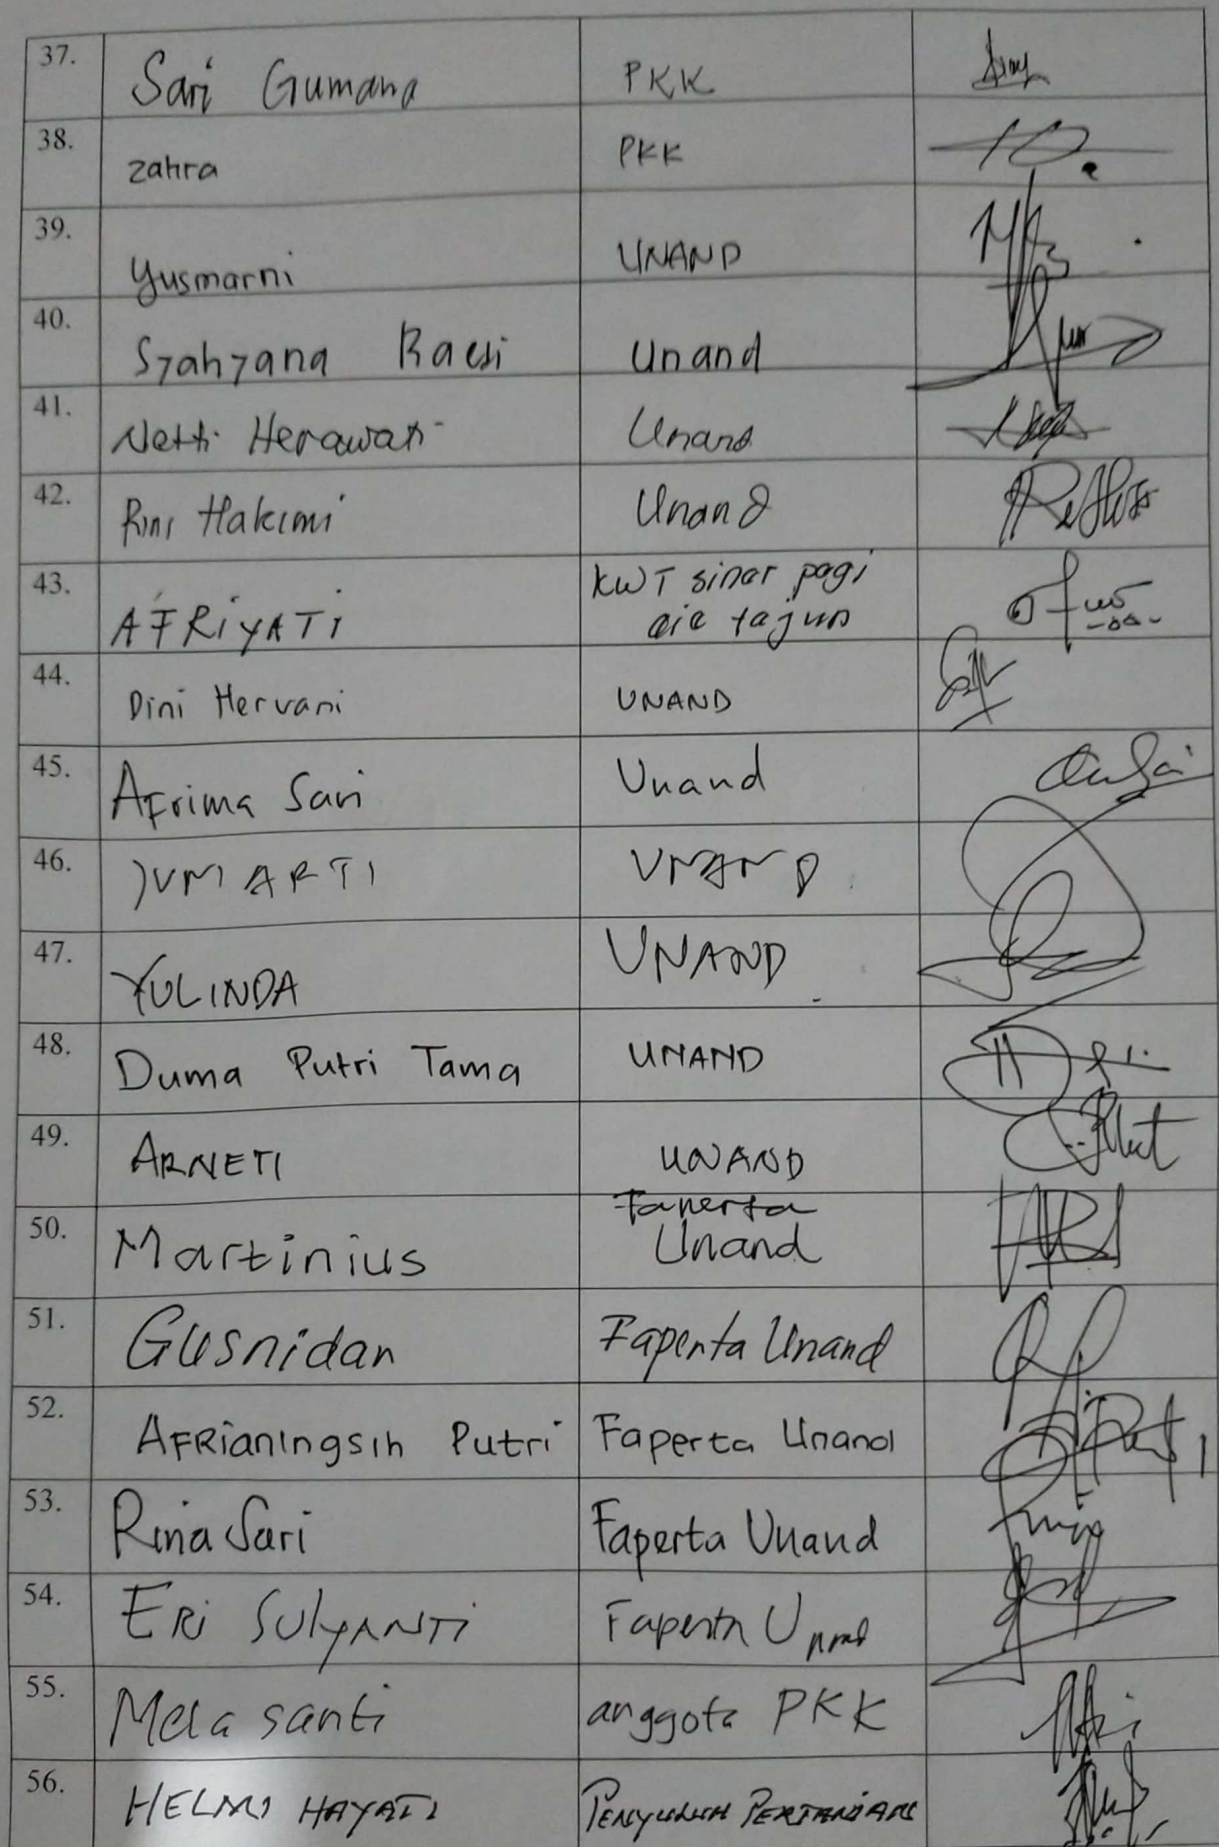 37. Sari Gumana PKK
38. zahra PKK
39. Yusmarni UNAND
40. Syahyana Raesi Unand
41. Netti Herawati Unand
42. Rini Hakimi Unand
43. AFRIYATI KWT sinar pagi
aie tajun
44. Dini Hervani UNAND
45. Afrima Sari Unand
46. JUMIARTI UNAND
47. YULINDA UNAND
48. Duma Putri Tama UNAND
49. ARNETI UNAND
50. Martinius Faperta
Unand
51. Gusnidar Faperta Unand
52. AFRianingsih Putri Faperta Unand
53. Rina Sari Faperta Unand
54. ERi SulyANTi Faperta Unand
55. Mela santi anggota PKK
56. HELMI HAYATI PENYULUH PERTANIAN